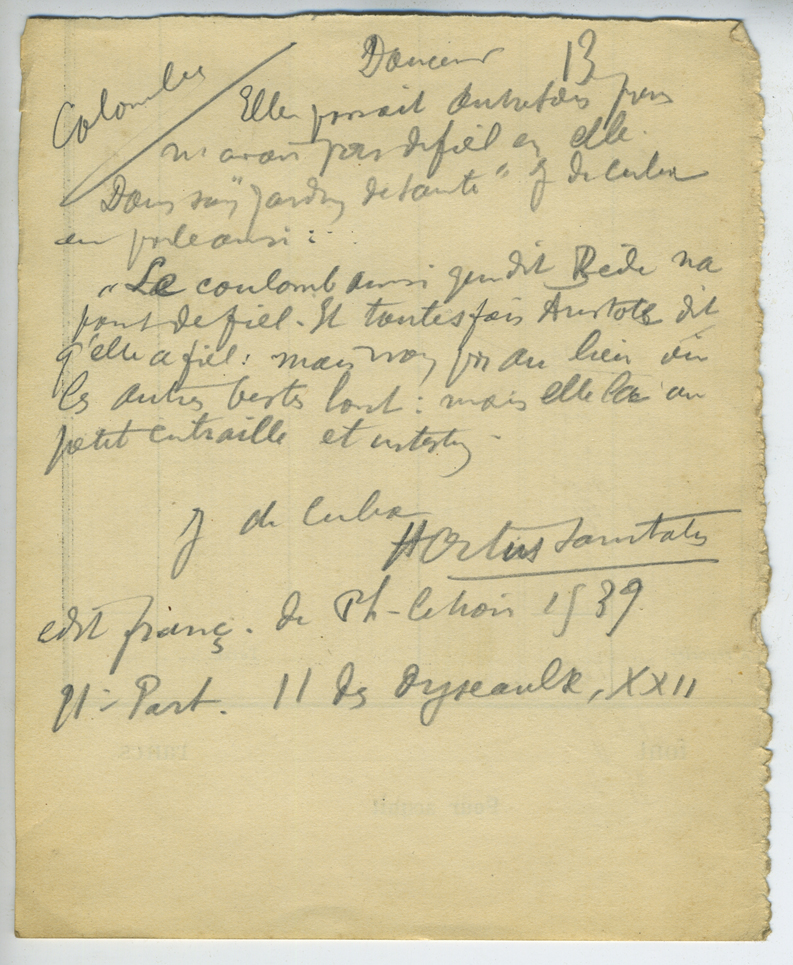 Douceur 13
Colombes
Elle passait autrefois pour
n'avoir pas de fiel en elle.
Dans son "Jardin de santé" J de Cuba
en parle ainsi :
"Le coulomb ainsi que dit Bede na
point de fiel. Et toutesfois Aristote dit
q'elle a fiel : mais non pas au lieu où
les autres bestes l'ont : mais elle la au
petit entraille et intestin.
J de Cuba
Hortus Sanitatis
edit franç. de Ph-Lenoir 1539
Part. 11 des oyseaulx, XXII